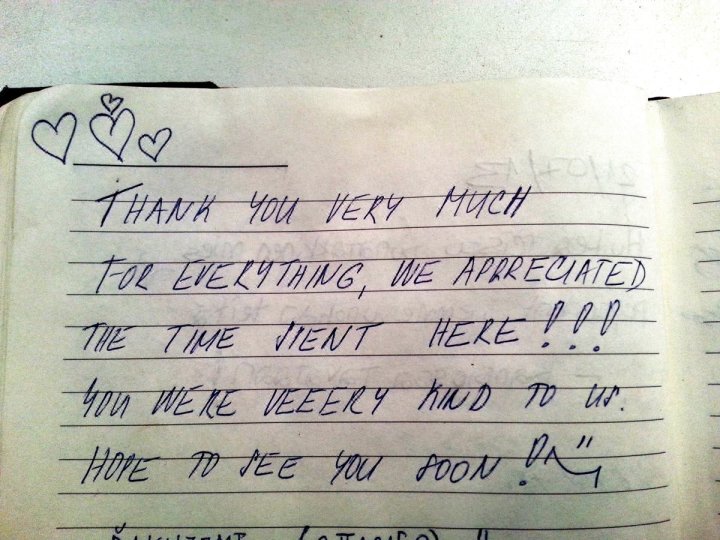 THANK YOU VERY MUCH
FOR EVERYTHING, WE APRRECIATED
THE TIME SPENT HERE!!!
YOU WERE VEEERY KIND TO US.
HOPE TO SEE YOU SOON!